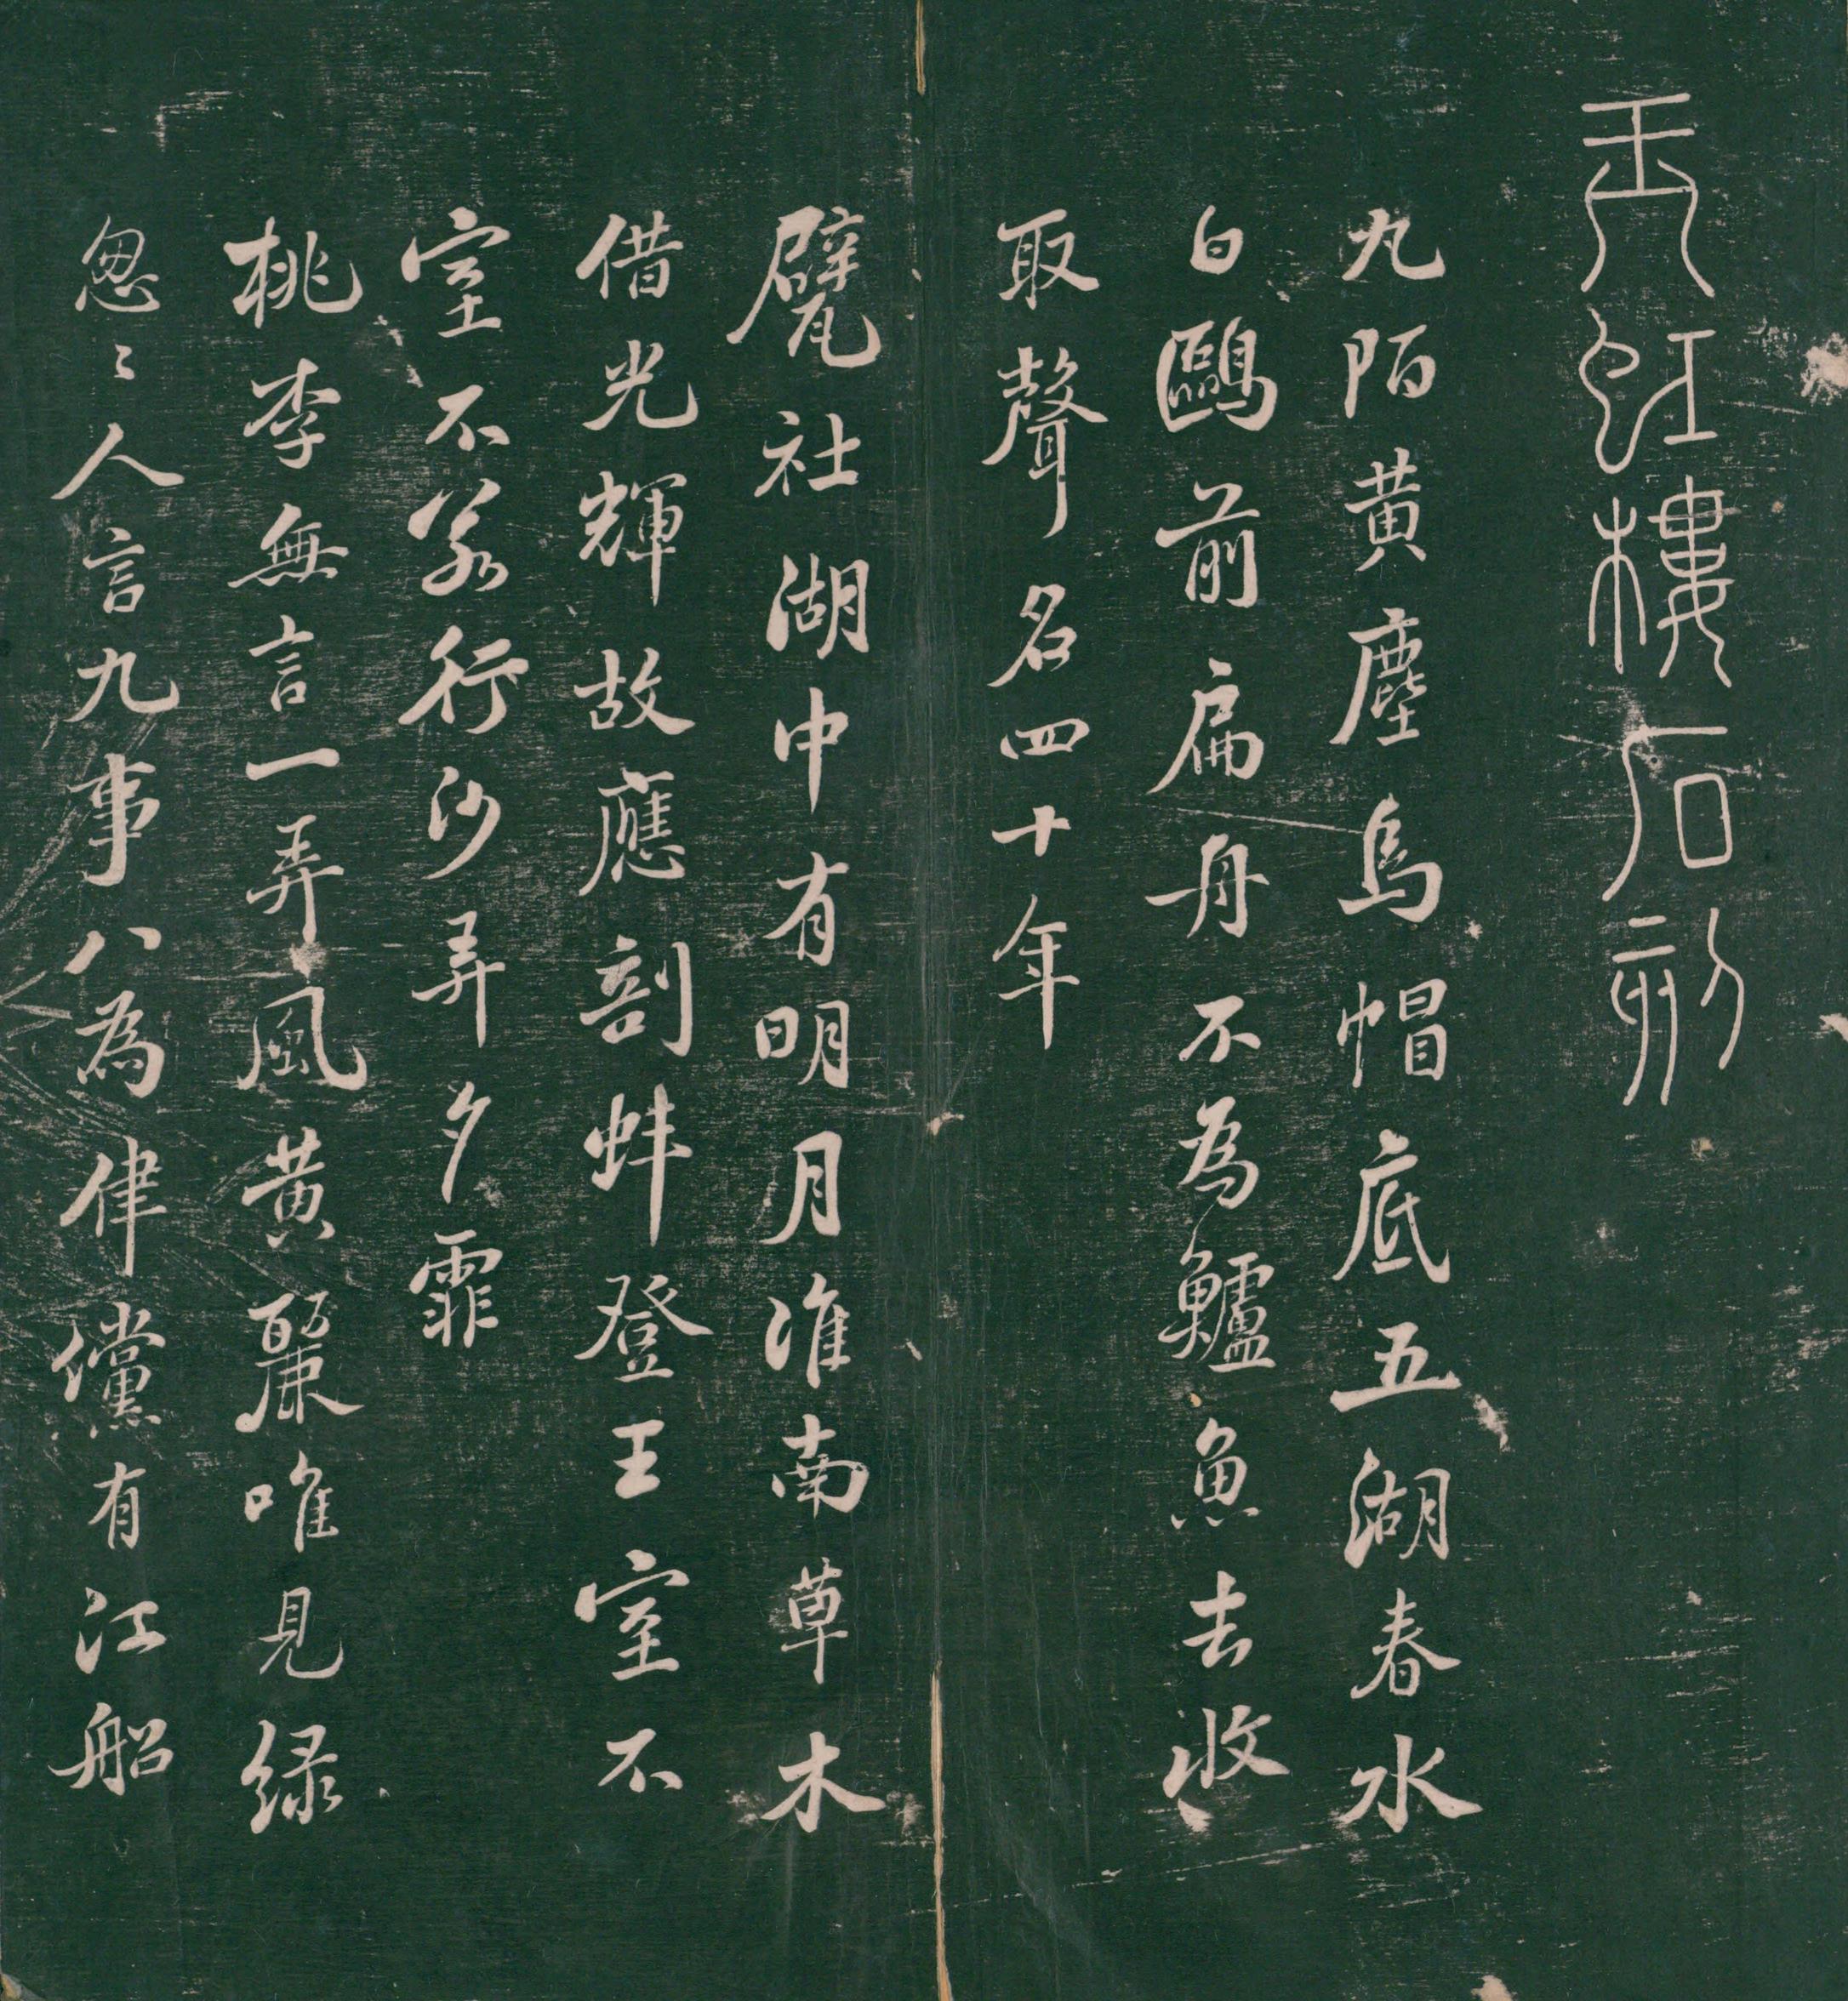 玉虹樓石刻
九陌黄塵烏帽底五湖春水
白鷗前扁舟不為鱸魚去收
取聲名四十年
甓社湖中有明月淮南草木
借光輝故應剖蚌登王室不
室不若行沙弄夕霏
桃李無言一弄風黄麗唯見緑
怱〻人言九事八為律儻有江船